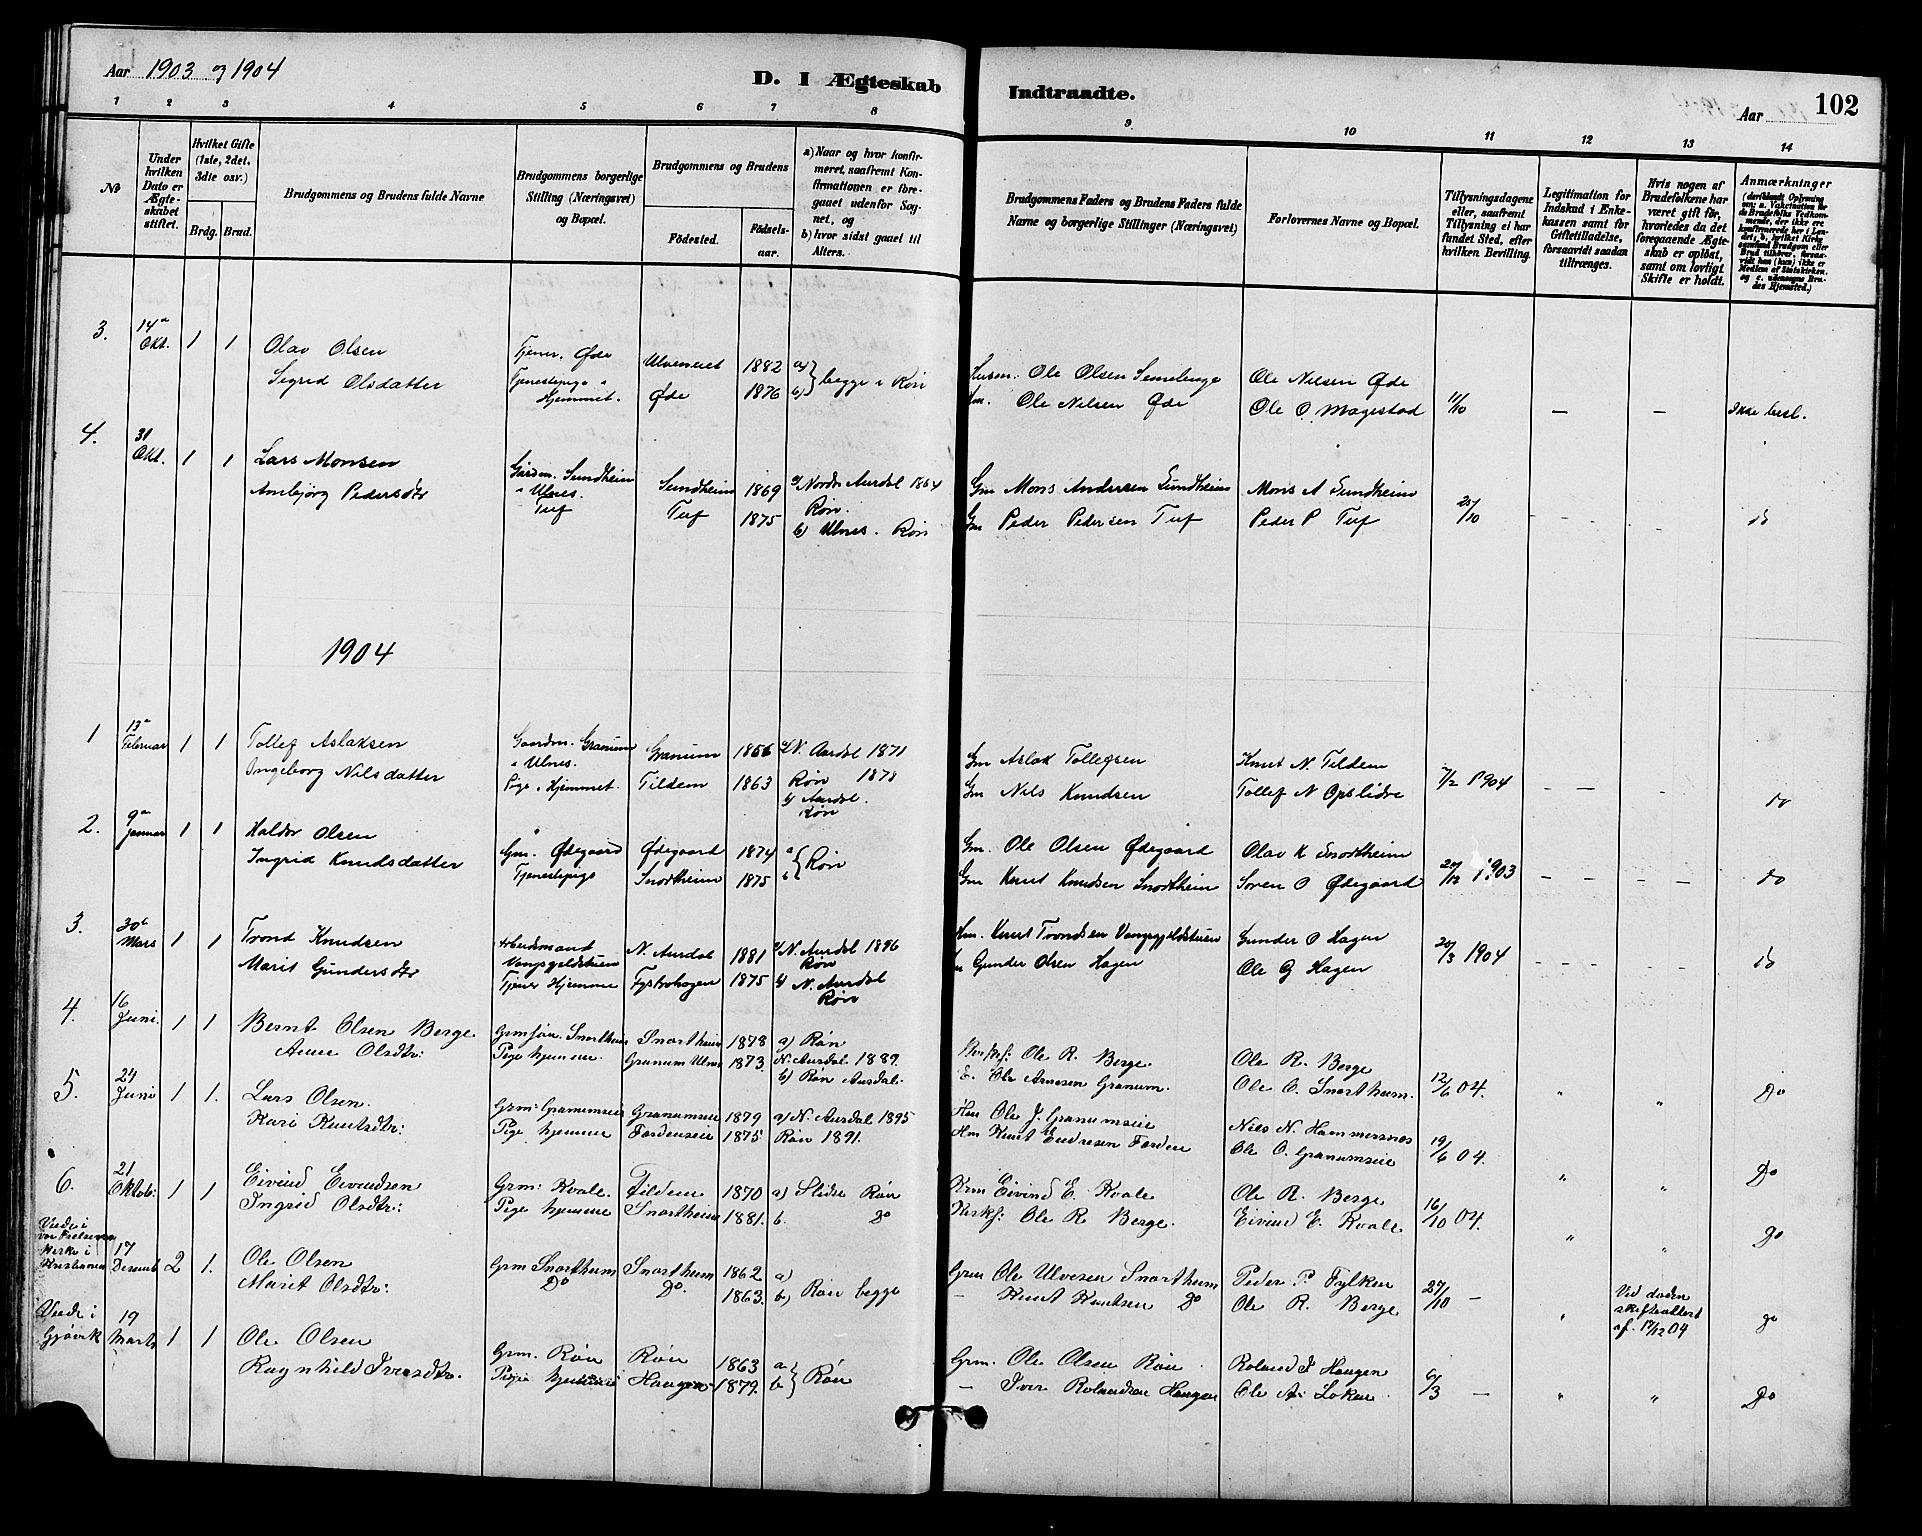 Aar 1903 og 1904
D. I Ægteskab Indtraadte.
Aar
102
1 2 3 4 5 6 7 8 9 10 11 12 13 14
No
Under hvilken Dato er Ægteskabet stiftet.
Hvilket Gifte (1ste, 2det, 3die osv.)
Brdg. Brud.
Brudgommens og Brudens fulde Navne
Brudgommens borgerlige Stilling (Næringsvei) og Bopæl.
Brudgommens og Brudens
Fødested.
Fødsels-aar.
a) Naar og hvor konfirmeret, saafremt Konfirmationen er foregaaet udenfor Sognet, og
b) hvor sidst gaaet til Alters.
Brudgommens Faders og Brudens Faders fulde Navne og borgerlige Stillinger (Næringsvei)
Forlovernes Navne og Bopæl.
Tillysningsdagene eller, saafremt Tillysning ei har fundet Sted, efter hvilken Bevilling.
Legitimation for Indskud i Enkekassen samt for Giftetilladelse, forsaavidt saadan tiltrænges.
Hvis nogen af Brudefolkene har været gift før, hvorledes da det foregaaende Ægteskab er opløst, samt om lovligt Skifte er holdt.
Anmærkninger
3. 14de Okt. 1 1 Olav Olsen Tjener, Øde Ulveneiet 1882 a) } begge i Røn Husm. Ole Olsen Semelenge Ole Nilsen Øde
Sigrid Olsdatter Tjenestepige i Hjemmet. Øde 1876 b) Ole Nilsen Øde Ole O. Magestad 11/10 — — Ikke besl.
4. 31 Okt. 1 1 Lars Monsen Gaardm. Sundheim i Ulnes. Sundheim 1869 a) Nordre Aurdal 1884 Røn. Gm Mons Andersen Sundheim Mons A Sundheim
Ambjørg Pedersdtr Tuf Tuf 1875 b) Ulnes. Røn Gm Peder Pedersen Tuf Peder P Tuf 25/10 - - - do
1904
1 13de Februar 1 1 Tollef Aslaksen Gaardm. Granum i Ulnes. Granum 1856 a) N. Aurdal 1871 Gm Aslak Tollefsen Knut N. Tildem
Ingeborg Nilsdatter Pige i Hjemmet. Tildem 1863 Røn 1878 b) Aurdal. Røn Gm Nils Knudsen Tollef N Opslidre 7/2 1904 - - - do
2. 9de Januar 1 1 Haldor Olsen Gm. Ødegaard Ødegaard 1874 a } Røn Gm. Ole Olsen Ødegaard Olav K Snortheim
Ingrid Knudsdatter Tjenestepige Snortheim 1875 b Gm Knut Knudsen Snortheim Søren O Ødegaard 20/12 1903 - - - - do
3. 30te Mars 1 1 Trond Knudsen Arbeidsmand Vangsgjeldstuen N. Aurdal 1881 a) N. Aurdal 1896 Røn Hm. Knut Trondsen Vangsgjeldstuen Gunder O Hagen
Marit Gundersdtr Tjener Hjemme Fystrohagen 1875 b) N. Aurdal Røn Gunder Olsen Hagen Ole G Hagen 20/3 1904 - - - - - do
4. 16 Juni. 1 1 Bernt Olsen Berge Grm søn. Snortheim Snortheim 1878 a) Røn Kirksf: Ole R. Berge. Ole R. Berge
Anne Olsdtr: Pige hjemme. Granum Ulnes 1873. N. Aurdal 1889. b) Røn Aurdal. Ole Arnesen Granum. Ole O. Snortheim. 12/6 04. " " Do
5. 24 Juni 1 1. Lars Olsen. Grm: Granumseie Granumseie 1879 a) N. Aurdal 1895 Hm Ole J. Granumseie Nils N. Hammersnes
Kari Knutsdtr: Pige hjemme Fordenseie 1875 Røn 1891. Hm Knut Endresen Forden Ole O. Granumseie 19/6 04. " " Do
6. 21 Oktob: 1 1 Eivind Eivindsen Grm: Kvale. Tildem 1870 a) Slidre Røn Grm Eivind E. Kvale Ole R. Berge
Ingrid Olsdtr: Pige hjemme Snortheim 1881. b. Do Kirksf: Ole R. Berge. Eivind E. Kvale 16/10 04. " " Do
Viede i vor Frelsers Kirke i Kristiania 17 Desemb 2 1. Ole Olsen Grm Snortheim Snortheim 1862 a) Grm Ole Ulvesen Snortheim Peder P. Fylken
Marit Olsdtr: Do Do. 1863. b) Røn begge — Knut Knutsen Do Ole R. Berge 27/10 — " Ved døden skifteattest af 17/12 04 Do
Viede i Gjøvik 19 Marts 1 1 Ole Olsen Grm. Røn Røn 1863 a } Røn Grm. Ole Olsen Røn Roland I Haugen
Ragnhild Iversdtr. Pige hjemme Haugen 1879. b — Iver Rolandsen Haugen Ole A. Løken 6/3 — " " Do